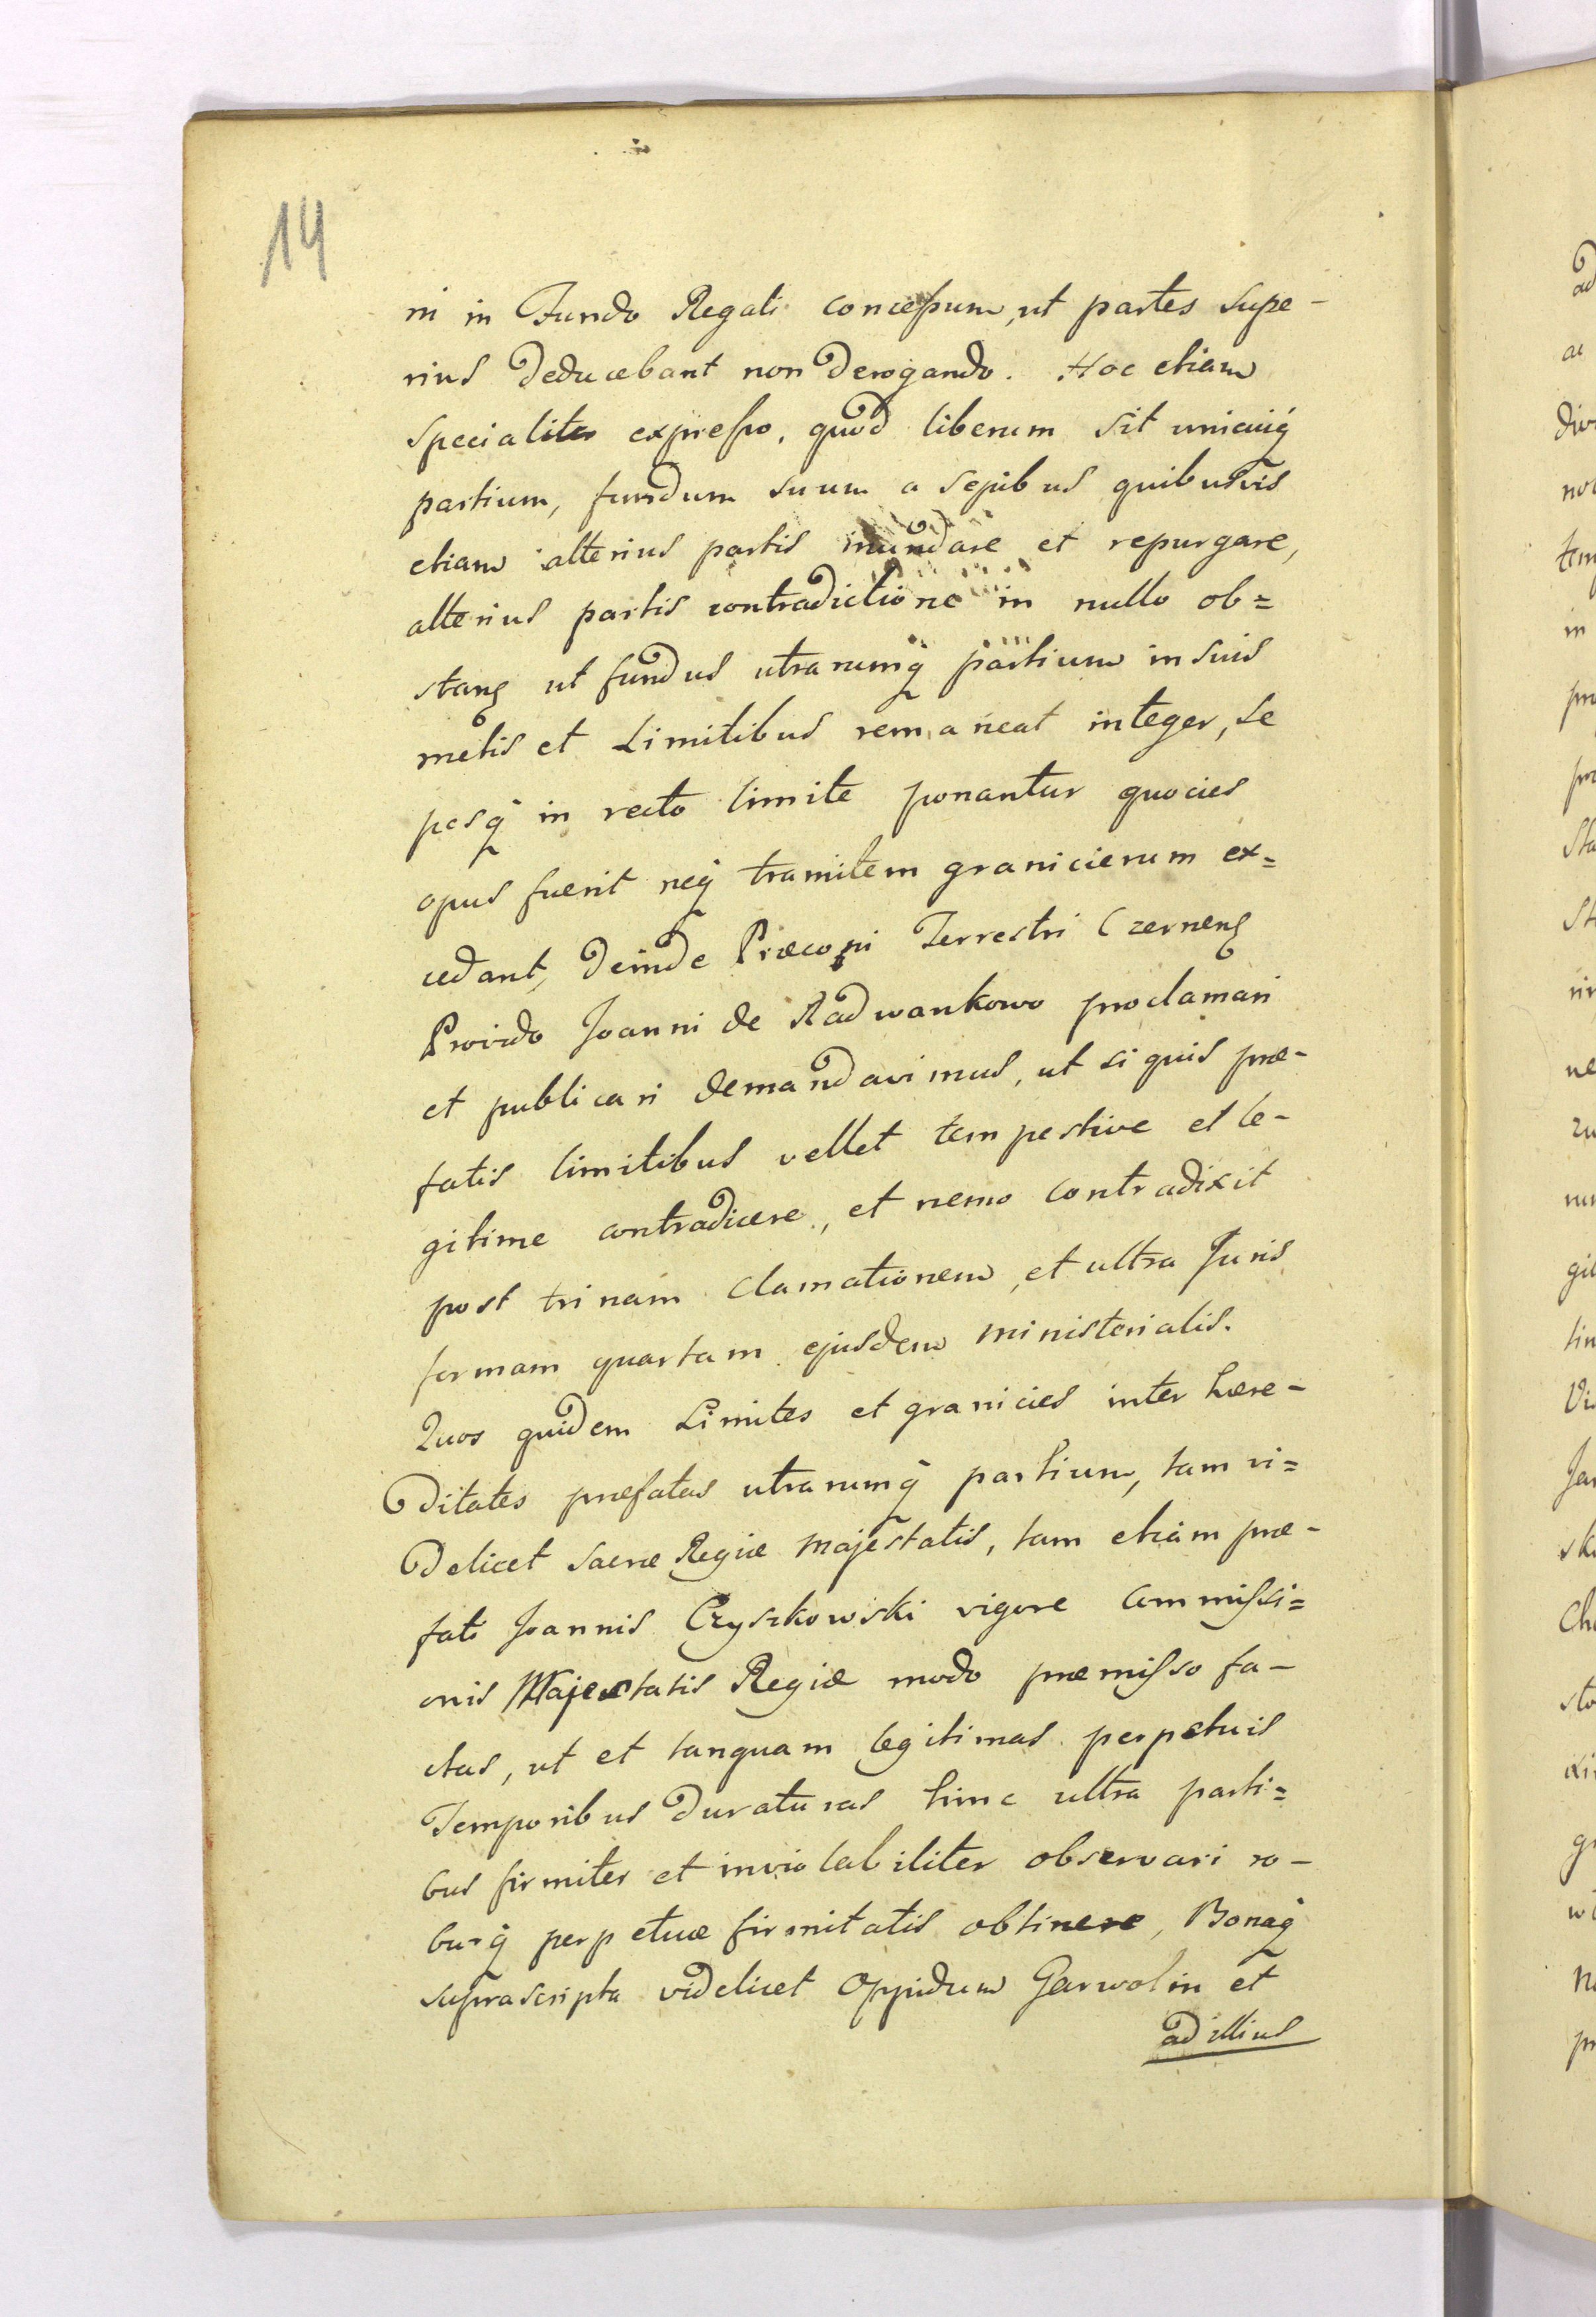 14
ni in Fundo Regali concessum, ut partes supe-
rius deducebant non derogando. Hoc etiam
specialiter expresso, quod liberum sit unicuiq
partium, fundum suum a sepibus quibusvis
etiam alterius partis mundare et repurgare,
alterius partis contradictione in nullo ob=
stanę ut fundus utrarumq partium in suis
metis et Limitibus remaneat integer, se
pesq in recto limite ponantur quocies
opus fuerit neq tramitem granicierum ex=
cedant, deinde Præconi Terrestri Czernenę
Provido Joanni de Radwankowo proclamari
et publicari demandavimus, ut si quis præ-
fatis limitibus vellet tempestive et le-
gitime contradicere, et nemo contradixit
post trinam clamationem, et ultra Juris
formam quartam ejusdem ministerialis.
Quos quidem Limites et granicies inter hære-
ditates præfatas utrarumq partium, tam vi=
delicet Sacræ Regiæ Majestatis, tam etiam præ-
fati Joannis Czyszkowski vigore commissi=
onis Majestatis Regiæ modo præmisso fa-
ctas, ut et tanquam legitimas perpetuis
Temporibus duraturas hinc ultra parti=
bus firmiter et inviolabiliter observari ro-
burq perpetuæ firmitatis obtinere, Bonaq
suprascripta videlicet Oppidum Garwolin et
ad illius